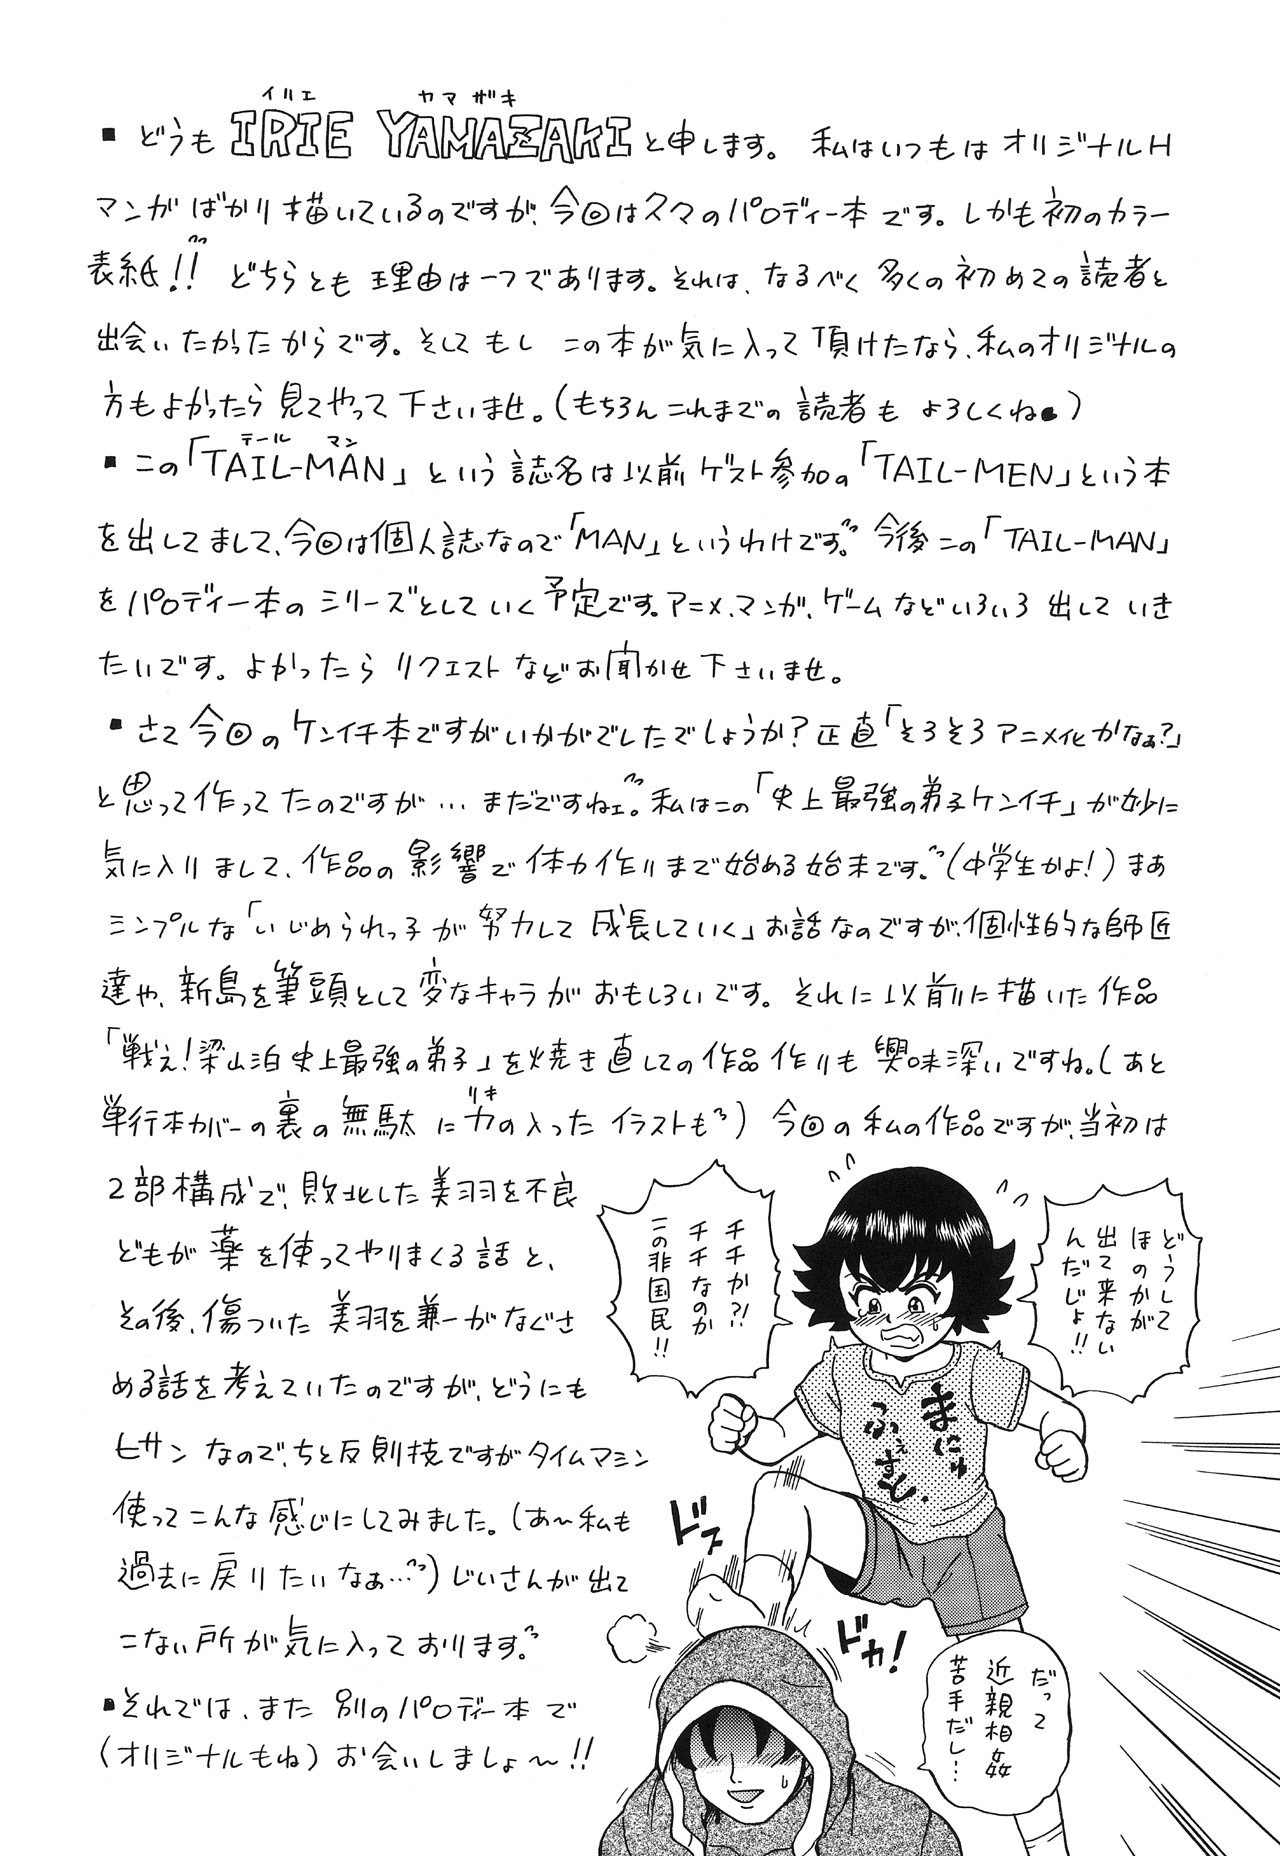 イリエ ヤマザキ
▪どうもIRIE YAMAZAKIと申します。 私はいつもはオリジナルH
マンガばかり描いているのですが、今回は久々のパロディー本です。しかも初のカラー
表紙!! どちらとも理由は一つであります。それは、なるべく多くの初めての読者と
出会いたかったからです。そしてもし この本が気に入って頂けたなら、私のオリジナルの
方もよかったら見てやって下さいませ。(もちろんこれまでの読者もよろしくね)
テール マン
▪この「TAIL-MAN」という誌名は以前ゲスト参加の「TAIL-MEN」という本
を出してまして、今回は個人誌なので「MAN」というわけです。今後この「TAIL-MAN」
をパロディー本のシリーズとしていく予定です。アニメ、マンガ、ゲームなどいろいろ出していき
たいです。よかったらリクエストなどお聞かせ下さいませ。
▪さて今回のケンイチ本ですがいかがでしたでしょうか?正直「そろそろアニメ化かなぁ?」
と思って作ってたのですが…まだですねェ。私はこの「史上最強の弟子ケンイチ」が妙に
気に入りまして、作品の影響で体力作りまで始める始末です。(中学生かよ!)まあ
シンプルな「いじめられっ子が努力して成長していく」お話なのですが、個性的な師匠
達や、新島を筆頭として変なキャラがおもしろいです。それに以前に描いた作品
「戦え!梁山泊史上最強の弟子」を焼き直しての作品作りも興味深いですね。(あと
リキ
単行本カバーの裏の無駄に力の入ったイラストも)今回の私の作品ですが、当初は
2部構成で、敗北した美羽を不良
どもが薬を使ってやりまくる話と、
その後、傷ついた美羽を兼一がなぐさ
める話を考えていたのですが、どうにも
ヒサンなので、ちと反則技ですがタイムマシン
使ってこんな感じにしてみました。(あ〜私も
過去に戻りたいなぁ…)じいさんが出て
こない所が気に入っております。
▪それでは、また別のパロディー本で
(オリジナルもね)お会いしましょ〜!!
どうして
ほのかが
出て来ない
んだじょ!!
チチか?!
チチなのか
この非国民!!
まにゅ
ふぇすと、
ドス
ドカ!
だって
近親相姦
苦手だし…